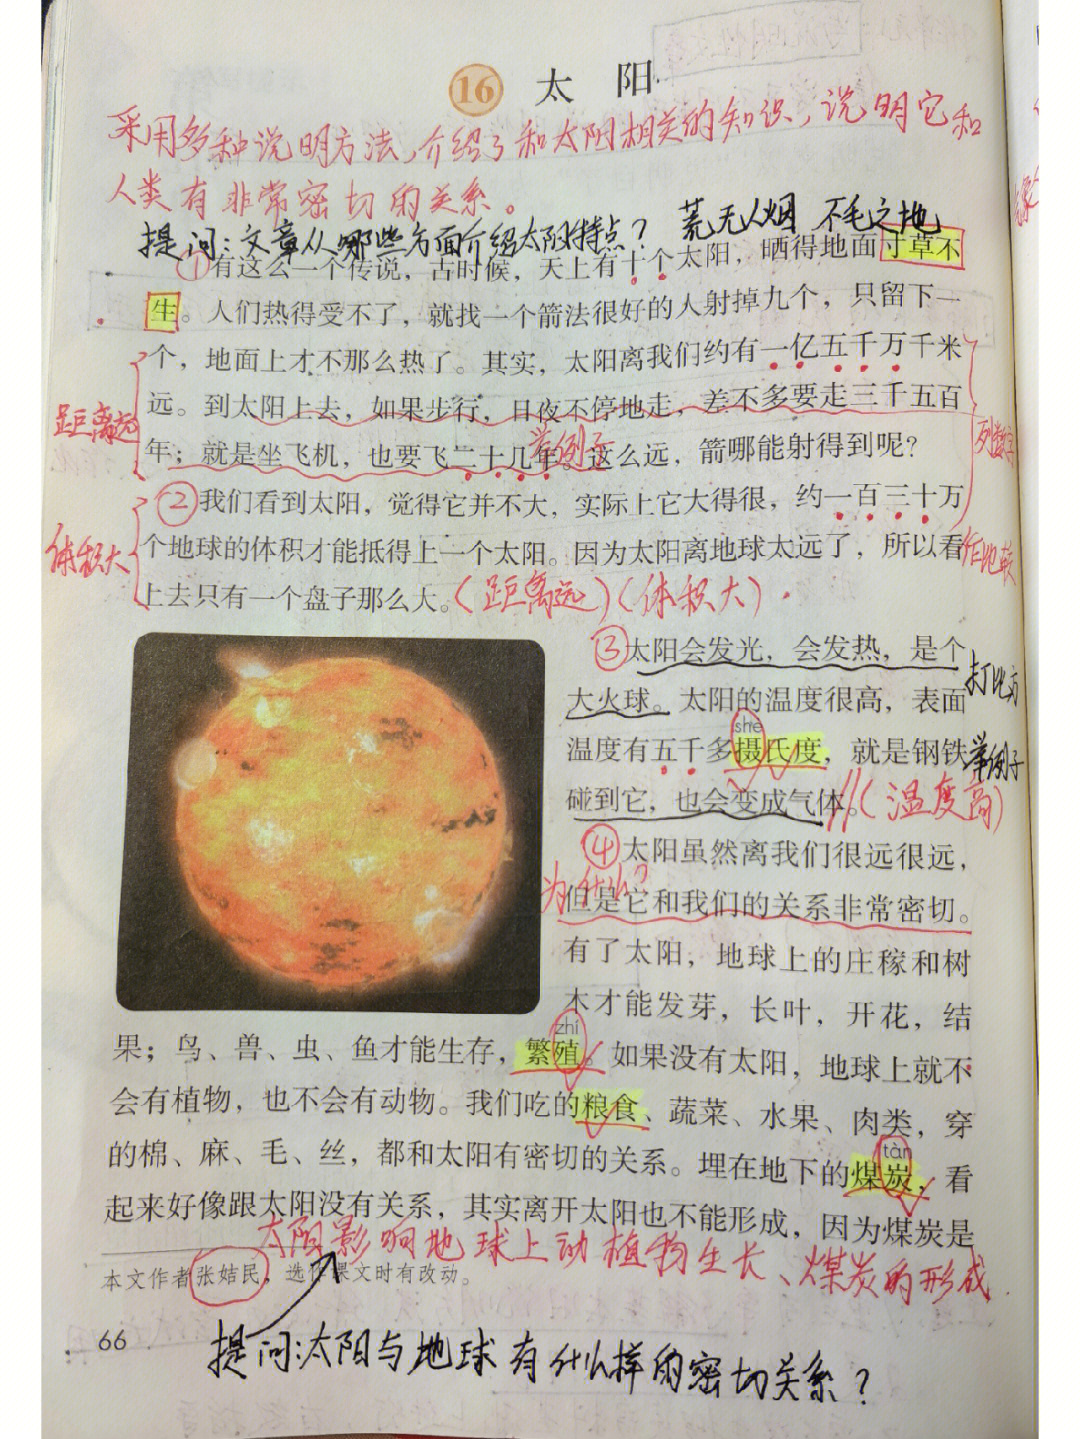 16 太阳
采用多种说明方法,介绍了和太阳相关的知识,说明它和
人类有非常密切的关系。
提问:文章从哪些方面介绍太阳特点? 荒无人烟 不毛之地
①有这么一个传说,古时候,天上有十个太阳,晒得地面寸草不
生。人们热得受不了,就找一个箭法很好的人射掉九个,只留下一
个,地面上才不那么热了。其实,太阳离我们约有一亿五千万千米
远。到太阳上去,如果步行,日夜不停地走,差不多要走三千五百
距离远
列数字
年;就是坐飞机,也要飞二十几年。这么远,箭哪能射得到呢?
举例子
②我们看到太阳,觉得它并不大,实际上它大得很,约一百三十万
个地球的体积才能抵得上一个太阳。因为太阳离地球太远了,所以看
体积大
作比较
上去只有一个盘子那么大。(距离远)(体积大)
③太阳会发光,会发热,是个
打比方
大火球。太阳的温度很高,表面
shè
温度有五千多摄氏度,就是钢铁
举例子
碰到它,也会变成气体。(温度高)
④太阳虽然离我们很远很远,
为什么?
但是它和我们的关系非常密切。
有了太阳,地球上的庄稼和树
木才能发芽,长叶,开花,结
zhí
果;鸟、兽、虫、鱼才能生存,繁殖。如果没有太阳,地球上就不
会有植物,也不会有动物。我们吃的粮食、蔬菜、水果、肉类,穿
tàn
的棉、麻、毛、丝,都和太阳有密切的关系。埋在地下的煤炭,看
起来好像跟太阳没有关系,其实离开太阳也不能形成,因为煤炭是
太阳影响地球上动植物生长、煤炭的形成
本文作者张姞民,选作课文时有改动。
66
提问:太阳与地球有什么样的密切关系?